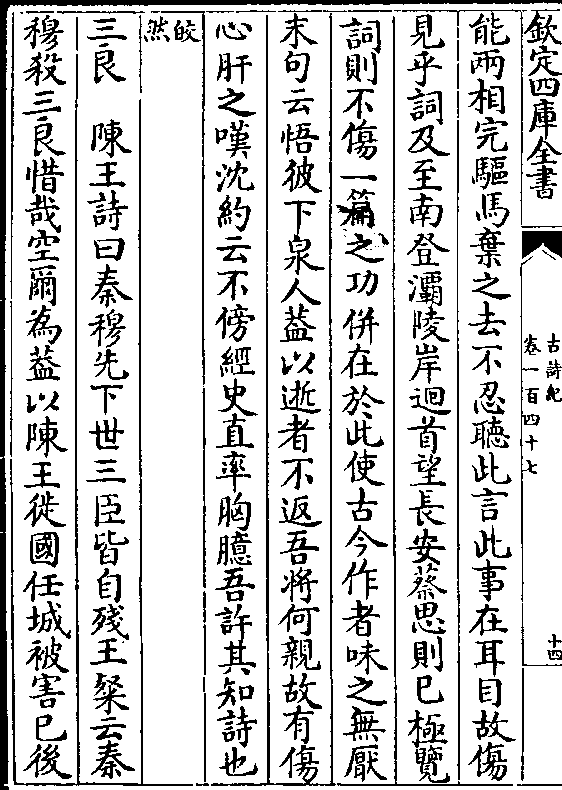 欽定四庫全書
古詩紀
卷一百四十七
十四
能兩相完驅馬棄之去不忍聽此言此事在耳目故傷
見乎詞及至南登灞陵岸迴首望長安蔡思則已極覽
詞則不傷一篇之功併在於此使古今作者味之無厭
末句云悟彼下泉人葢以逝者不返吾將何親故有傷
心肝之嘆沈約云不傍經史直率胸臆吾許其知詩也
皎
然
三良　陳王詩曰秦穆先下世三臣皆自殘王粲云秦
穆殺三良惜哉空爾為葢以陳王徙國任城被害已後